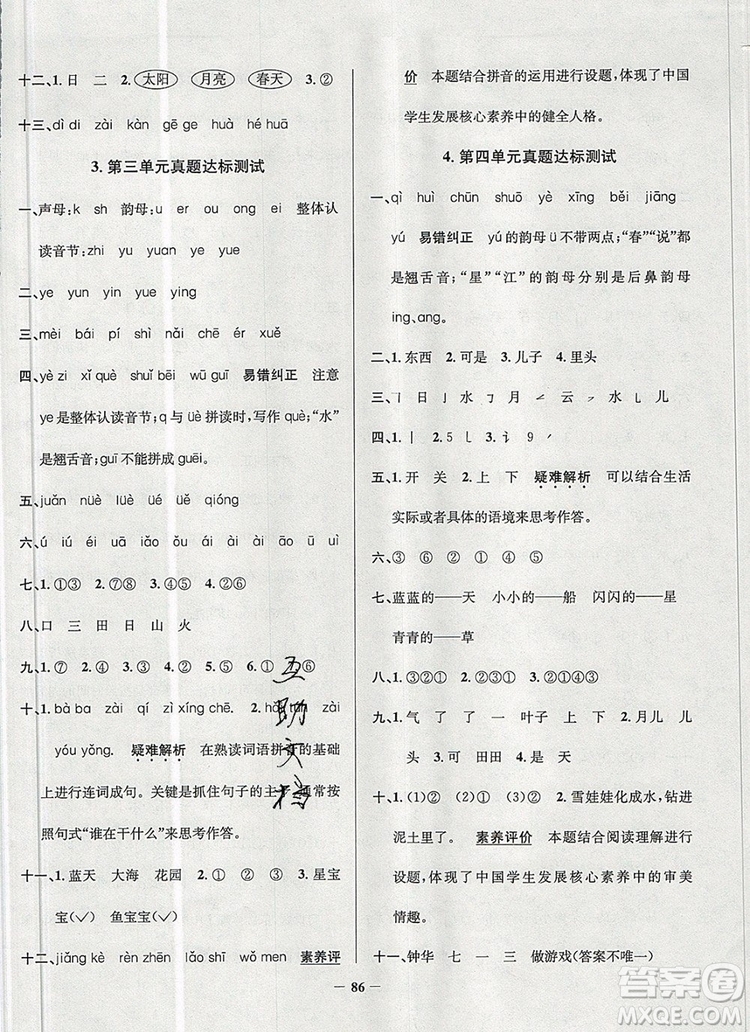 十二、1.日 二 2.太阳 月亮 春天 3.②
十三、dì di zài kàn gē ge huà hé huā
3.第三单元真题达标测试
一、声母:k sh 韵母:u er ou ong ei 整体认
读音节:zhi yu yuan ye yue
二、ye yun yin yue ying
三、mèi bái pí shì nǎi chē ér xuě
四、yè zi xǐ què shuǐ bēi wū guī 易错纠正 注意
ye是整体认读音节;q与üè拼读时,写作què;“水”
是翘舌音;guī不能拼成guēi。
五、juǎn nüè lüè üē qióng
六、ú iú éi uā iǎo ǒu ái ài āi āo ū uì
七、1.①③ 2.⑦⑧ 3.④⑤ 4.②⑥
八、口 三 田 日 山 火
九、1.⑦ 2.④ 3.② 4.③ 5.⑤ 6.① ⑥
十、1.bà ba zài qí zì xíng chē. 2. zài
yóu yǒng. 疑难解析 在熟读词语拼音的基础
上进行连词成句。关键是抓住句子的主 常按
照句式“谁在干什么”来思考作答。
十一、1.蓝天 大海 花园 2.① ② ③ 3.星宝
宝(✓) 鱼宝宝(✓)
十二、jiǎng kè rèn zhēn lǎo shī wǒ men 素养评
价 本题结合拼音的运用进行设题,体现了中国
学生发展核心素养中的健全人格。
4.第四单元真题达标测试
一、qì huì chūn shuō yè xīng běi jiāng
yú 易错纠正 yú的韵母ü不带两点;“春”“说”都
是翘舌音;“星”“江”的韵母分别是后鼻韵母
ing、ang。
二、1.东西 2.可是 3.儿子 4.里头
三、丨 日 亅 水 ㇆ 月 ㇜ 云 ㇇ 水 乚 儿
四、1.丨 2.丨 5 乚 3.讠 9 ㇀
五、1.开 关 2.上 下 疑难解析 可以结合生活
实际或者具体的语境来思考作答。
六、③ ⑥ ② ① ④ ⑤
七、蓝蓝的——天 小小的——船 闪闪的——星
青青的——草
八、1.③②① 2.③①② 3.②①④③
九、1.气 了 了 一 叶子 上 下 2.儿 头 儿
头 3.可 田田 4.是 天
十、1.(1)② (2)① 2.④ 3.雪娃娃化成水,钻进
泥土里了。 素养评价 本题结合阅读理解进行
设题,体现了中国学生发展核心素养中的审美
情趣。
十一、钟华 七 一 三 做游戏(答案不唯一)
86
互助文档
答案圈
MXQE.COM